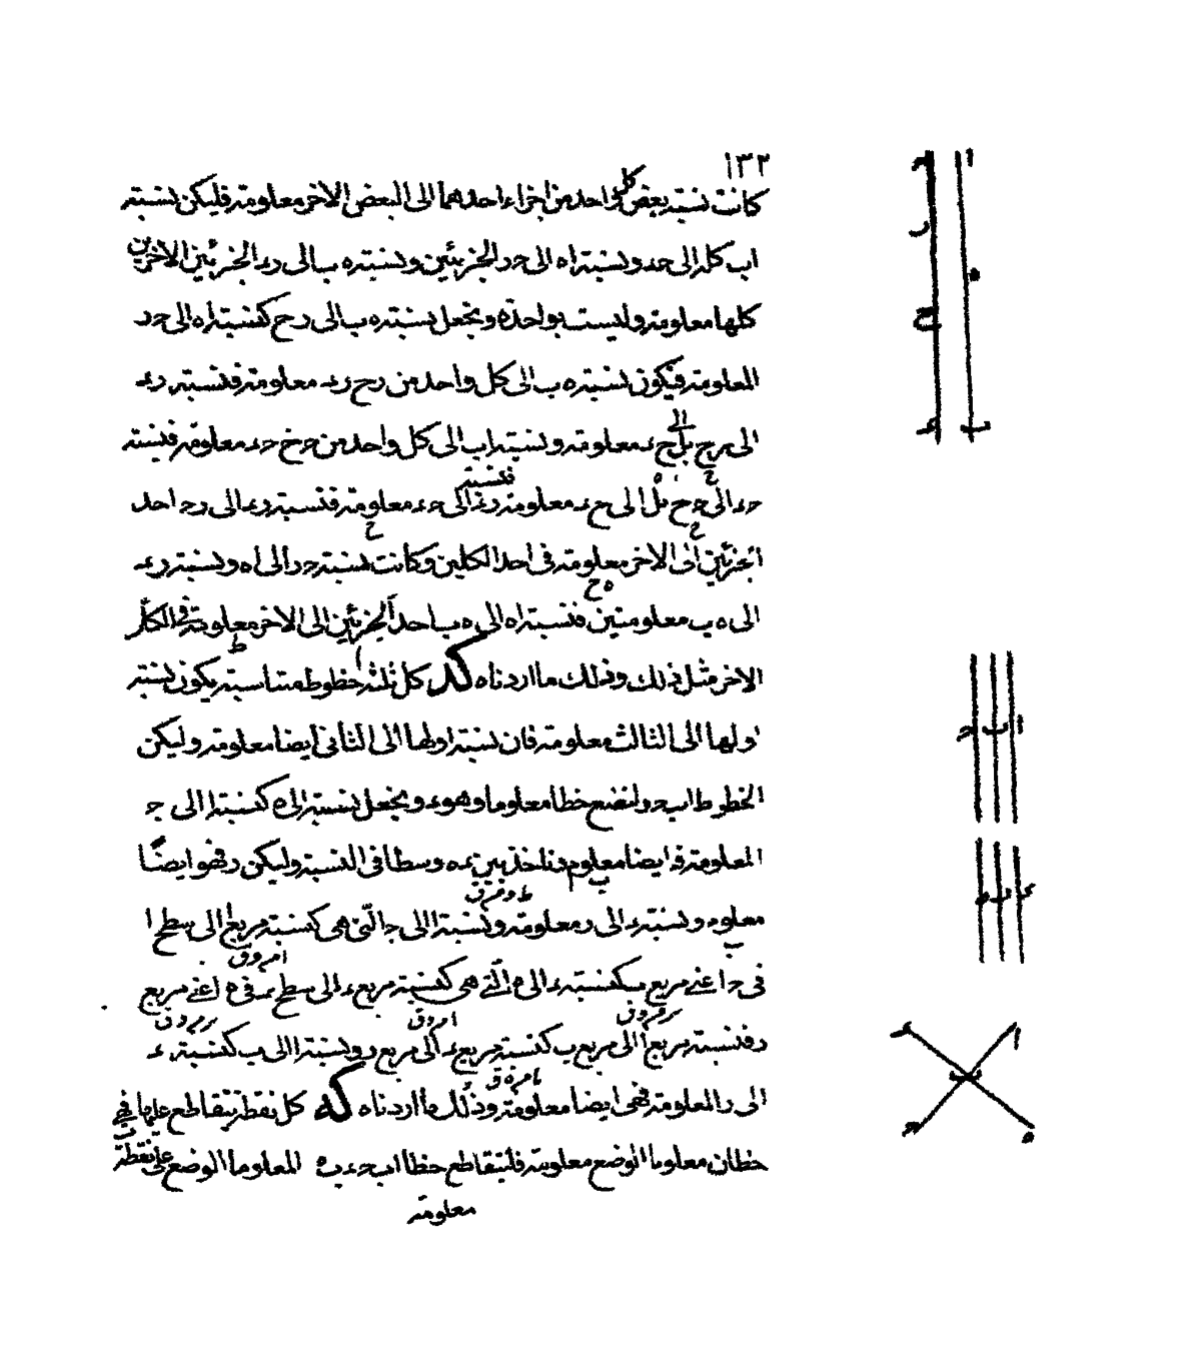 ١٣٢
كانت نسبة بعض كل واحد من اجزاء احدهما الى البعض الاخر معلومة فليكن نسبة
اب كله الى حد ونسبة اه الى حر الجزئين ونسبة ه ب الى رء الجزئين الاخرين
كلها معلومة وليست بواحدة ونجعل نسبة ه ب الى رح كنسبة اه الى حر
المعلومة فيكون نسبة ه ب الى كل واحد من رح رء معلومة فنسبة رء
الى رح بل الى حء معلومة ونسبة اب الى كل واحد من حح حء معلومة فنسبة
حء الى حح بل الى حء معلومة فنسبة رء الى حء معلومة فنسبة رء الى رح احد
الجزئين الى الاخر معلومة فى احد الكلين وكانت نسبة حر الى اه ونسبة رء
الى ه ب معلومتين فنسبة اه الى ه ب احد الجزئين الى الاخر معلومة فى الكل
الاخر مثل ذلك وذلك ما اردناه كد كل ثلثة خطوط متناسبة يكون نسبة
اولها الى الثالث معلومة فان نسبة اولها الى الثانى ايضا معلومة وليكن
الخطوط اب ح ولنضع خطا معلوما وهو ء ونجعل نسبة ء الى ه كنسبة ا الى ح
المعلومة فه ايضا معلوم وناخذ بين ء ه وسطا فى النسبة وليكن ر فهو ايضًا
معلوم ونسبة ء الى ر معلومة ونسبة ا الى ح التى هى كنسبة مربع ا الى سطح ا
فى ح اعنى مربع ب كنسبة ء الى ه التى هى كنسبة مربع ء الى سطح ء فى ه اعنى مربع
ر فنسبة مربع ا الى مربع ب كنسبة مربع ء الى مربع ر ونسبة ا الى ب كنسبة ء
الى ر المعلومة فهى ايضا معلومة وذلك ما اردناه كه كل نقطة يتقاطع عليها فهى
خطان معلوما الوضع معلومة فليتقاطع خطا اب ح ء ب ه المعلوما الوضع على نقطة ب
معلومة